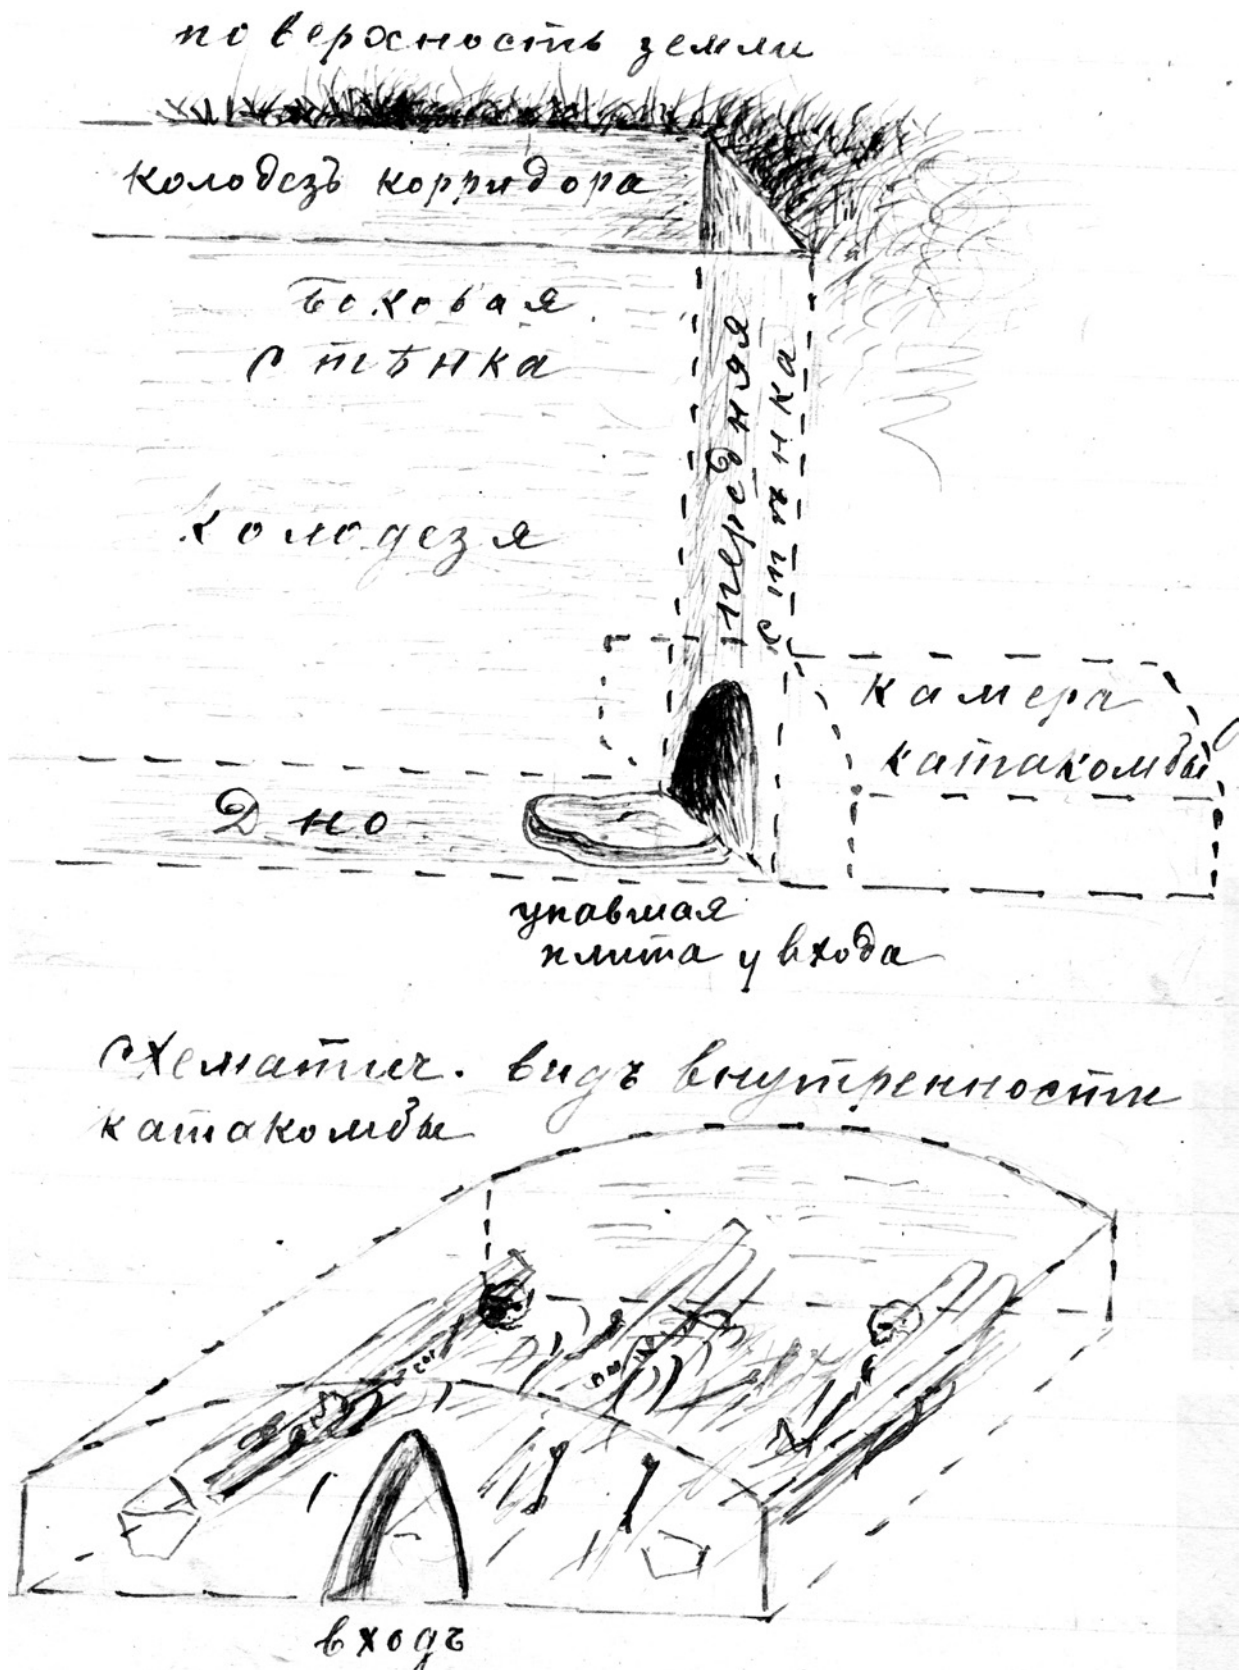 поверхность земли
колодезъ корридора
боковая
стѣнка
колодезя
передняя
стѣнка
камера
катакомбы
Дно
упавшая
плита у входа
Схематич. видъ внутренности
катакомбы
входъ